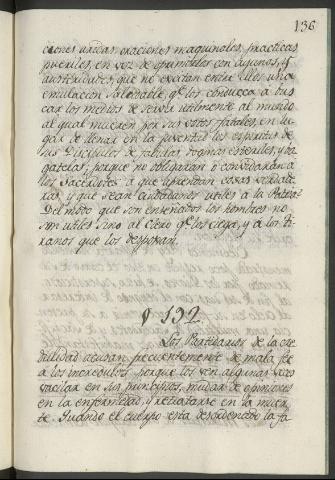 136
ciones unidas, oraciones maquinales, practicas
pueriles, en vez de oprimirlos con ayunos, y
austeridades, que no excitan entre ellos una
emulacion saludable, qe. los conduzca a bus
car los medios de servir utilmente al mundo
al qual mueren por sus votos fatales, en lu
gar de llenar en la juventud los espiritus de
sus Discipulos de fabulas, dogmas esteriles, y ba
gatelas; porque no obligaran o convidaran a
los Sacerdotes a que aprendan cosas verdade
ras, y que sean ciudadanos utiles a la Patria?
Del modo que son enseñados los hombres no
son utiles sino al Clero qe. los ciega, y a los ti
ranos que los despojan.
§ 192.
Los Partidarios de la cre
dulidad acusan frecuentemente de mala fe
a los incredulos porque los ven algunas veces
vacilar en sus principios, mudar de opiniones
en la enfermedad, y retratarse en la muer
te. Quando el cuerpo esta desordenado la fa